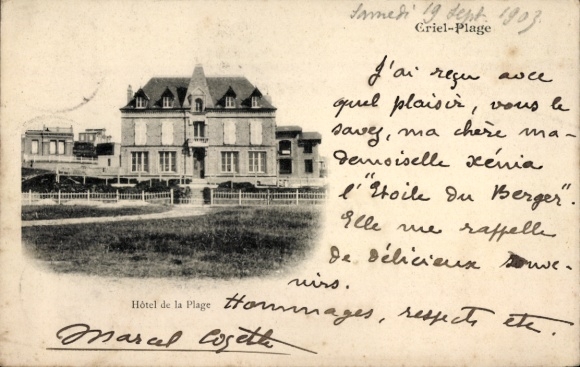 Samedi 19 Sept. 1903
Criel-Plage
J'ai reçu avec
quel plaisir, vous le
savez, ma chère ma-
demoiselle Xénia
l'"Etoile du Berger".
Elle me rappelle
de délicieux souve-
nirs.
Hôtel de la Plage
Hommages, respects etc.
Marcel